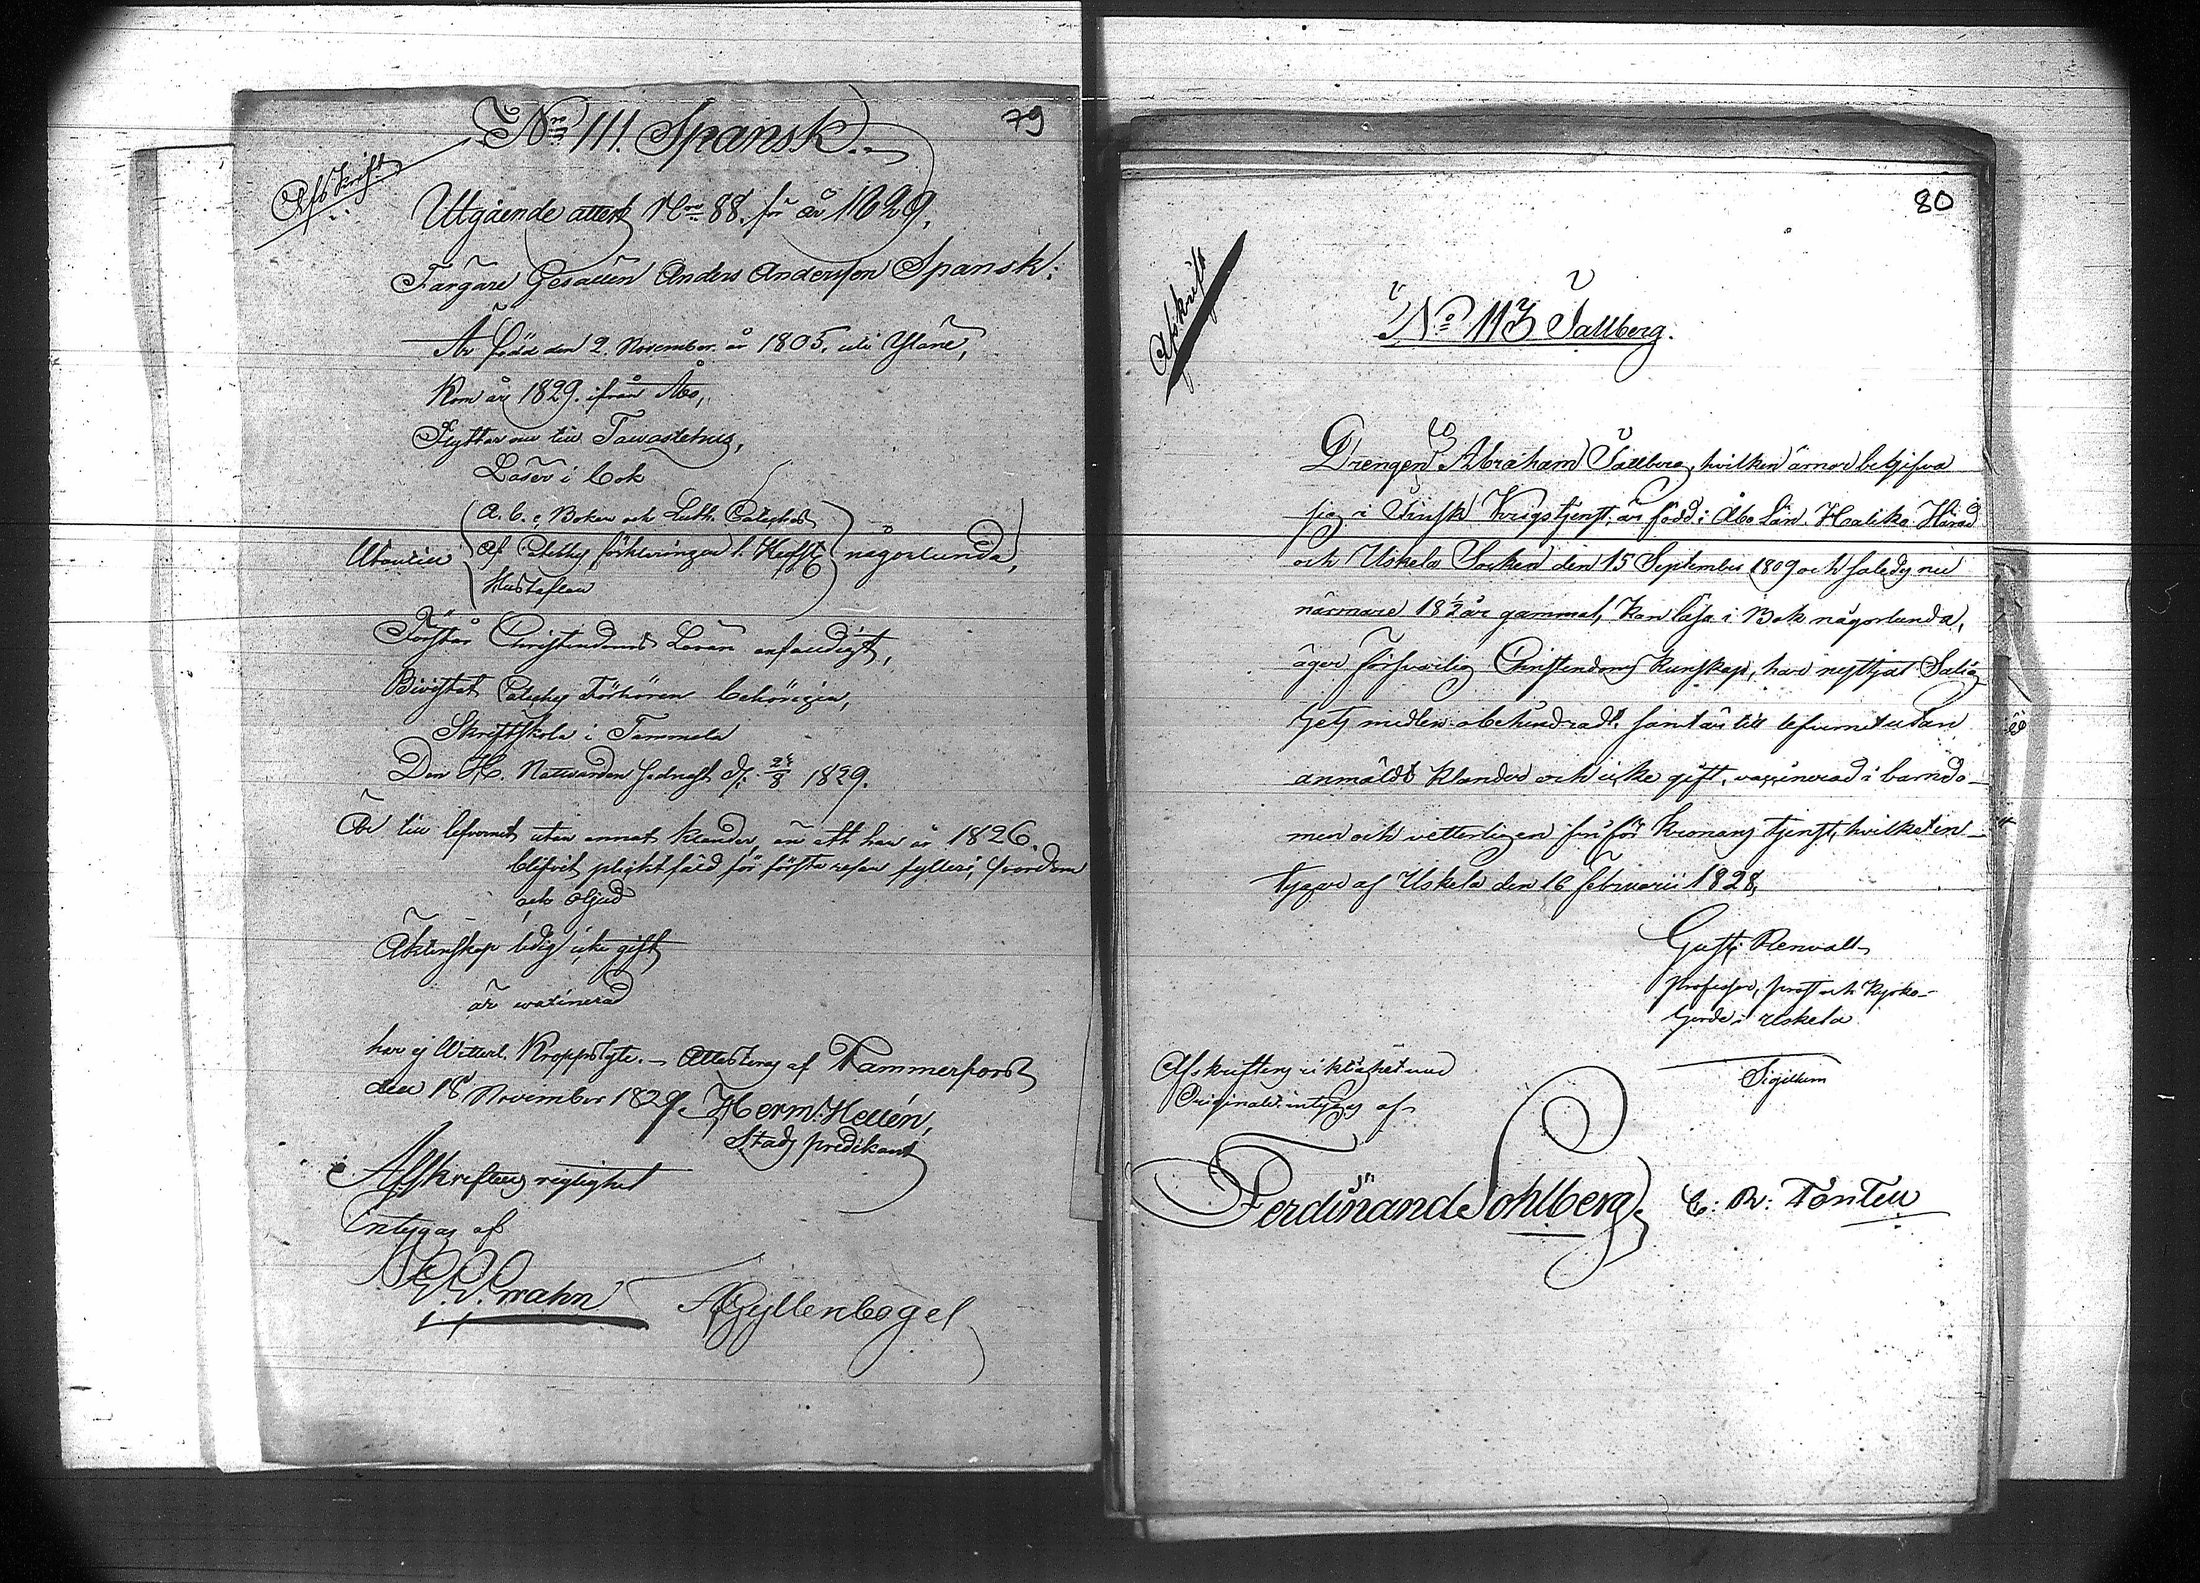 79
No 111. Spansk.
Afskrift
Utgående attest No 88. för år 1829.
Färgare Gesällen Anders Andersson Spansk:
Är född den 2. November år 1805. uti Yläne,
Kom år 1829. ifrån Åbo,
Flyttar nu till Tawastehus,
Läser i bok
A. b. c. Boken och Luth. Catches
Utantill af Cateches förklaringen någorlunda,
Hustaflan
Förstår Christendoms Läran enfaldigt,
Bivistat Cateches Förhören behörigen,
Skriftskola i Tammela
Den H. Nattvarden sednast d. 24/8 1829.
Är till lefvernet utan annat klander, än att han år 1826.
blifvit plightfäld för första resan fylleri, svordom
och oljud
Äktenskap ledig icke gift
är vaxinerad
har ej Witterl. Kroppslyte. – Attesteras af Tammerfors
den 18 November 1829. Herm: Hellén,
Stads predikant
Afskriftens riglighet
intygar af
Prahn AGyllenbögel
80
Afskrift
No 113 Tallberg.
Drengen Abraham Tallberg, hvilken ärnar begifva
sig i Finsk Krigstjenst, är född i Åbo Län Haliko Härad
och Uskela Socken den 15 September 1809 och således nu
närmare 18 1/2 år gammal, kan läsa i Bok någorlunda,
äger försvarlig Christendoms kunskap, har nyttjat Salig
hets medlen obehindradt, samt är till lefvernet utan
anmäldt klander och icke gift, vaxinerad i barndo-
men och vetterligen fri för Kronans tjenst, hvilket in-
tygar af Uskela den 16 Februarii 1828,
Gust: Renvall
Professor, prost och Kyrko-
herde i Uskela
Sigillum
Afskriftens riktighet med
Originalet intygas af
Ferdinand Sohlberg. C: R: Tönten